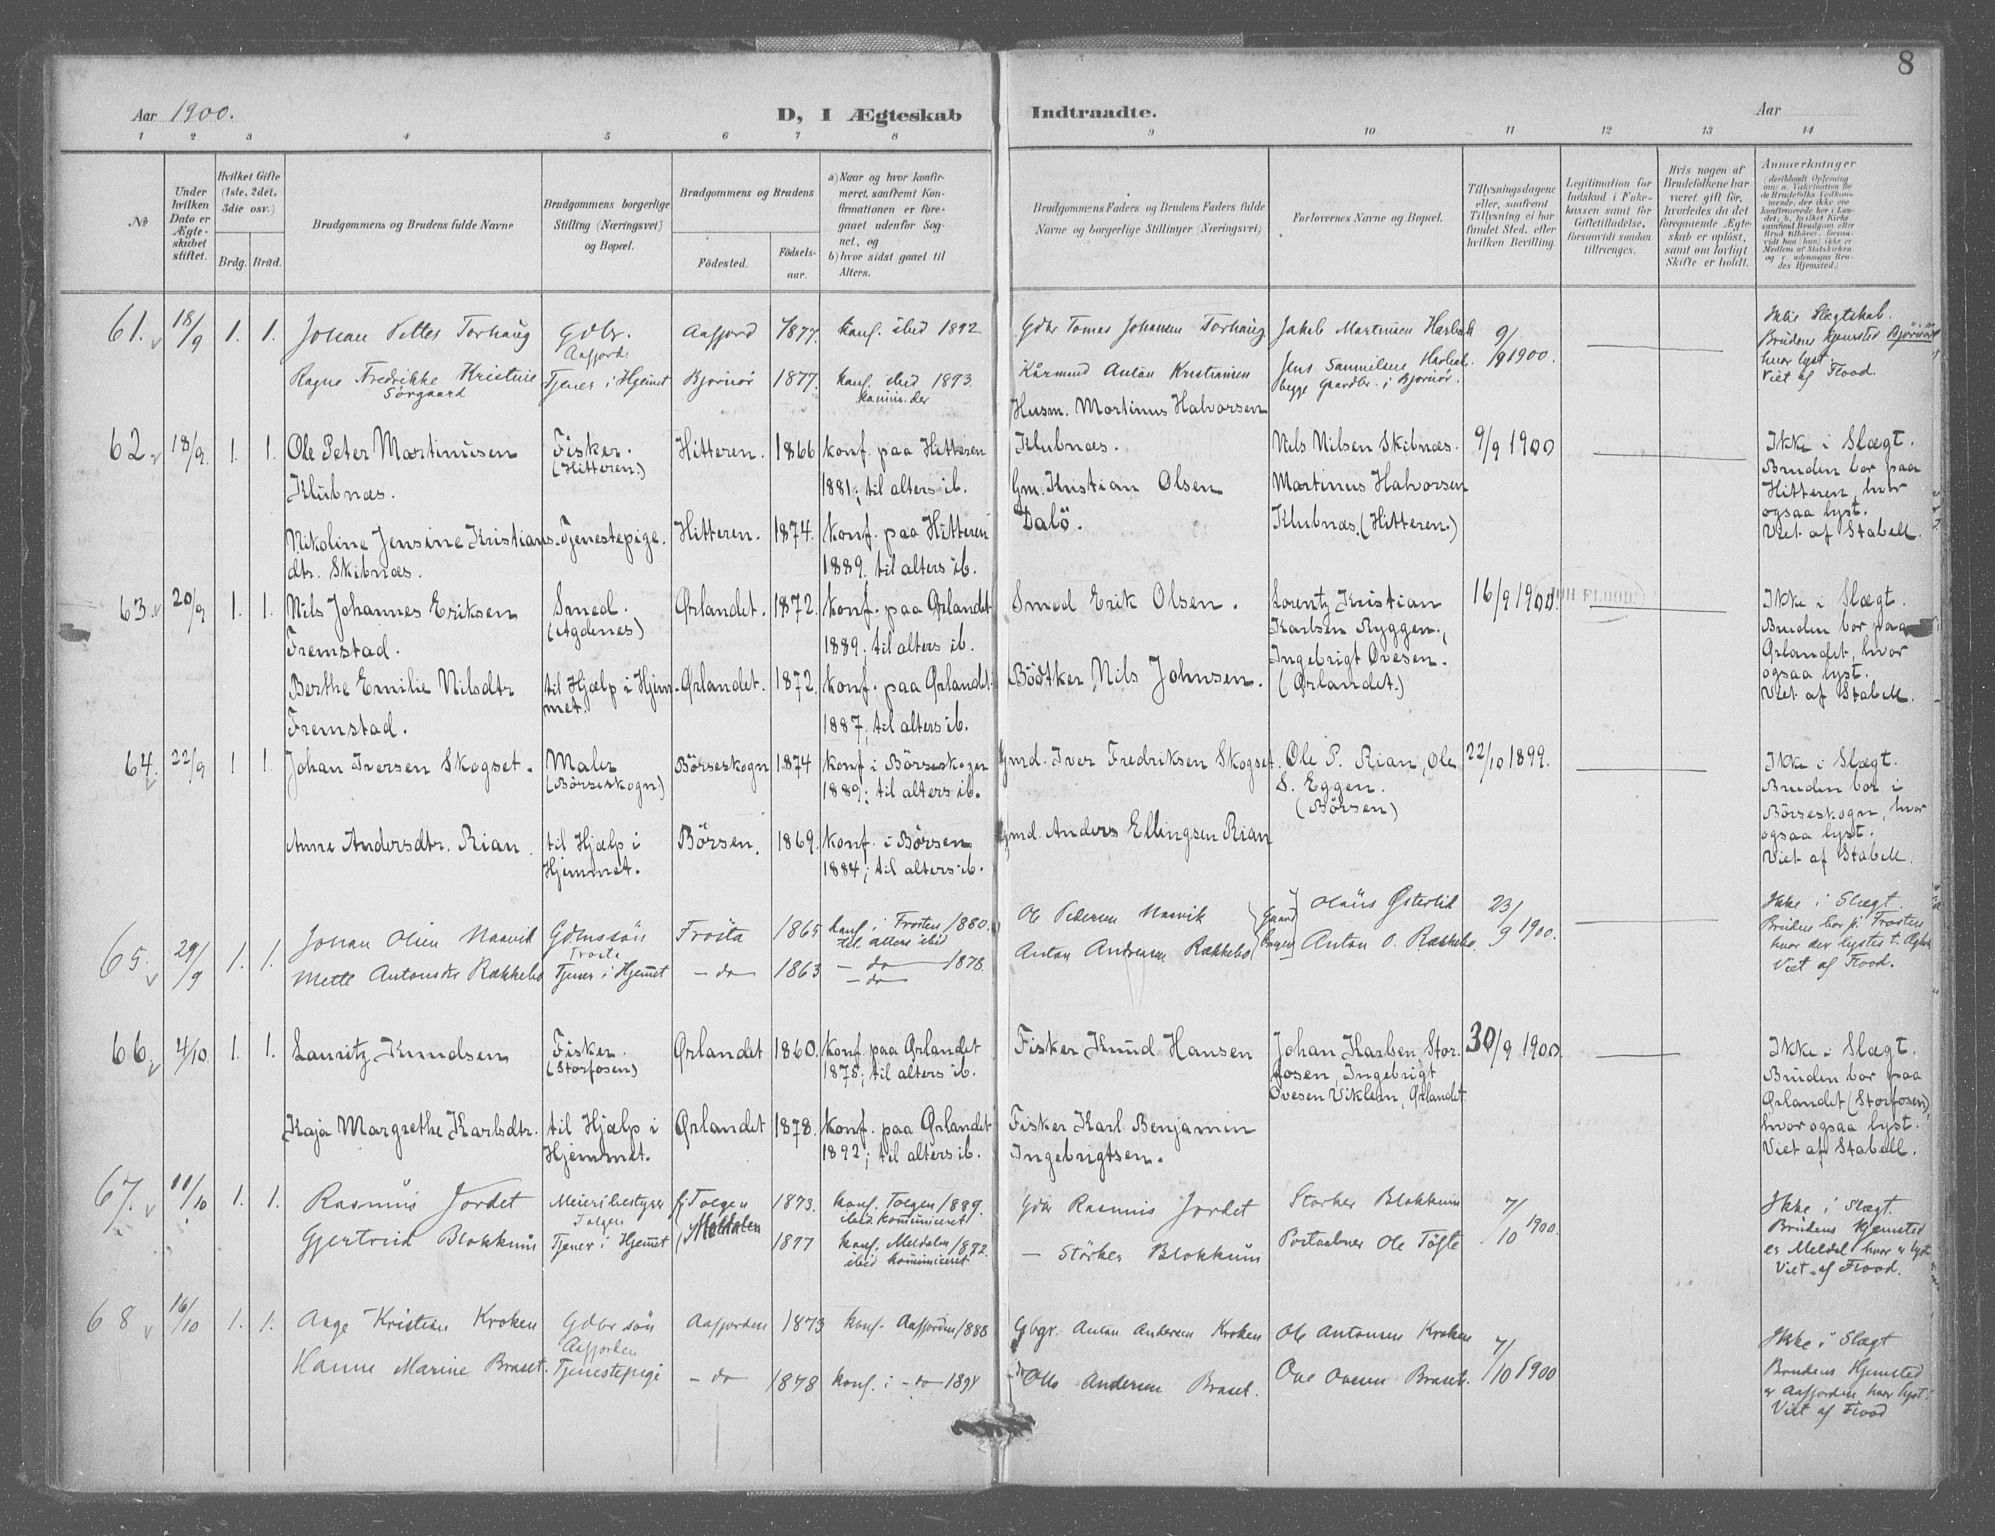 8
Aar 1900.
D, I Ægteskab Indtraadte.
Aar
1 2 3 4 5 6 7 8 9 10 11 12 13 14
№
Under hvilken Dato er Ægteskabet stiftet.
Hvilket Gifte (1ste, 2det, 3die osv.)
Brdg. Brud.
Brudgommens og Brudens fulde Navne
Brudgommens borgerlige Stilling (Næringsvei) og Bopæl.
Brudgommens og Brudens
Fødested.
Fødselsaar.
a) Naar og hvor konfirmeret, saafremt Konfirmationen er foregaaet udenfor Sognet, og
b) hvor sidst gaaet til Alters.
Brudgommens Faders og Brudens Faders fulde Navne og borgerlige Stillinger (Næringsvei)
Forlovernes Navne og Bopæl.
Tillysningsdagene eller, saafremt Tillysning ei har fundet Sted, efter hvilken Bevilling.
Legitimation for Indskud i Enkekassen samt for Giftetilladelse, forsaavidt saadan tiltrænges.
Hvis nogen af Brudefolkene har været gift før, hvorledes da det foregaaende Ægteskab er opløst, samt om lovligt Skifte er holdt.
Anmærkninger
61. 18/9 1. 1. Johan Petter Torhaug Gdbr. Aafjord Aafjord 1877. konf. ibid 1892 Gdbr Tomas Johansen Torhaug Jakob Martinsen Harbak 9/9 1900.
Ikke Slægtskab.
Brudens Hjemsted Bjørnør
hvor lyst.
Viet af Flood.
Ragna Fredrikke Kristine Sørgaard Tjener i Hjemet Bjørnør 1877. konf. ibid 1893. Kårmand Antan Kristiansen Jens Samuelsen Harbak begge Gaardbr. i Bjørnør.
62. 18/9. 1. 1. Ole Peter Martinusen Klubnæs. Fisker. (Hitteren.) Hitteren. 1866 konf. paa Hitteren 1881; til alters ib. Husm. Martinus Halvorsen Klubnæs. Nils Nilsen Skibnæs. 9/9 1900
Ikke i Slægt.
Bruden bor paa
Hitteren, hvor
ogsaa lyst.
Viet af Stabell.
Nikoline Jensine Kristians-
dtr. Skibnæs. Tjenestepige. Hitteren. 1874. konf. paa Hitteren 1889. til alters ib. Gm. Kristian Olsen Dalö. Martinus Halvorsen Klubnæs. (Hitteren.)
63. 20/9 1. 1. Nils Johannes Eriksen Fremstad. Smed. (Agdenes) Ørlandet. 1872. konf. paa Ørlandet 1889; til alters ib. Smed Erik Olsen. Lorentz Kristian Karlsen Ryggen., Ingebrigt Ovesen. (Ørlandet.) 16/9 1900.
Ikke i Slægt.
Bruden bor paa
Ørlandet, hvor
ogsaa lyst.
Viet af Stabell.
Berthe Emilie Nilsdtr Fremstad. til Hjælp i Hjem-
met. Ørlandet. 1872. konf. paa Ørlandet 1887; til alters ib. Bödtker Nils Johnsen.
64. 22/9 1 1. Johan Iversen Skogset. Maler (Börseskogn) Börseskogn 1874 konf i Börseskogn 1889; til alters ib. Gmd. Iver Fredriksen Skogset. Ole P. Rian, Ole S. Eggen. (Börsen) 22/10 1899.
Ikke i Slægt.
Bruden bor i
Börseskogn, hvor
ogsaa lyst.
Viet af Stabell.
Anne Andersdtr. Rian. til Hjælp i Hjemmet. Börsen. 1869. konf. i Börsen 1884; til alters ib. Gmd. Anders Ellingsen Rian
65. 29/9 1. 1. Johan Olsen Naavik Gdmssön Frosta 1865 konf. i Frosten 1880. til alters ibid Ole Pedersen Naavik Olaus Østerlid 23/9 1900.
Ikke i Slægt.
Bruden bor p. Frosten
Viet af Flood.
Mette Antonsdtr Rækkebo Tjener i Hjemet - do 1863 - do - 1878. - do - Antan Andreasen Rækkebo Antan O. Rækkebo.
66. 4/10 1. 1. Lauritz Knudsen Fisker. (Storfosen) Ørlandet 1860. konf. paa Ørlandet 1875; til alters ib. Fisker Knud Hansen Johan Karlsen, Stor-
fosen, Ingebrigt
Ovesen Viklem, Ørlandet. 30/9 1900
Ikke i Slægt.
Bruden bor paa
Ørlandet (Storfosen),
hvor ogsaa lyst.
Viet af Stabell.
Kaja Margrethe Karlsdtr. til Hjælp i Hjemmet. Ørlandet 1878. konf. paa Ørlandet 1892; til alters ib. Fisker Karl Benjamin Ingebrigtsen.
67. 11/10 1. 1. Rasmus Jordet Meieribestyrer Tolgen Tolgen 1873. konf. Tolgen 1889. ibid kommuniceret Gdbr Rasmus Jordet Størker Blokkum 7/10 1900.
Ikke i Slægt.
Brudens Hjemsted
er Meldal hvor er lyst
Viet af Flood.
Gjertrud Blokkum Tjener i Hjemet Meldalen 1877 konf. Meldalen 1892. ibid kommuniceret - Størker Blokkum Postaabner Ole Töfte
68 16/10 1. 1. Aage Kristian Kroken Gdbr sön Aafjorden Aafjorden 1873 konf. Aafjorden 1888 Gbgr. Antan Andersen Kroken Ole Antonsen Kroken 7/10 1900
Ikke i Slægt
Brudens Hjemsted
er Aafjorden hvor lyst.
Viet af Flood
Hanna Marine Braset. Tjenestepige - do 1878 konf. i - do 1894 Otto Andersen Braset. Ove Ovesen Braset.